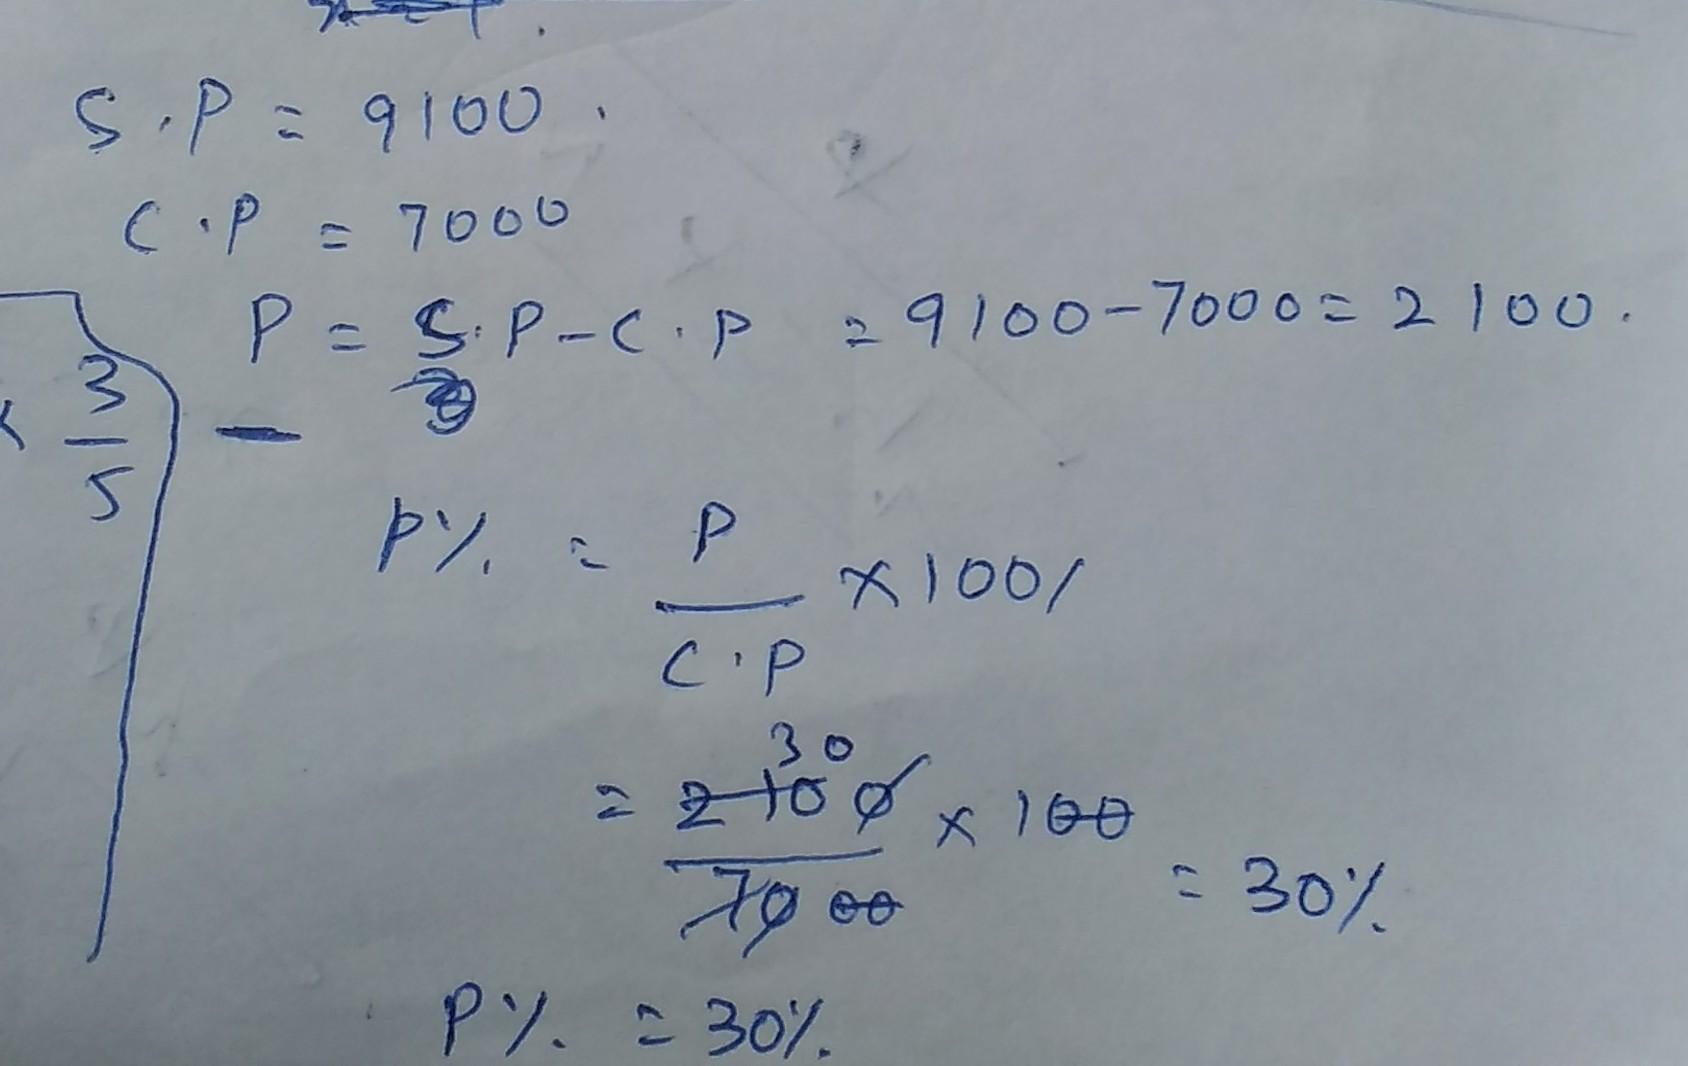 S.P = 9100.
C.P = 7000
P = S.P - C.P = 9100 - 7000 = 2100.
× 3/5
P% = P/C.P × 100/
30
= 2100/7000 × 100 = 30%.
P%. = 30%.